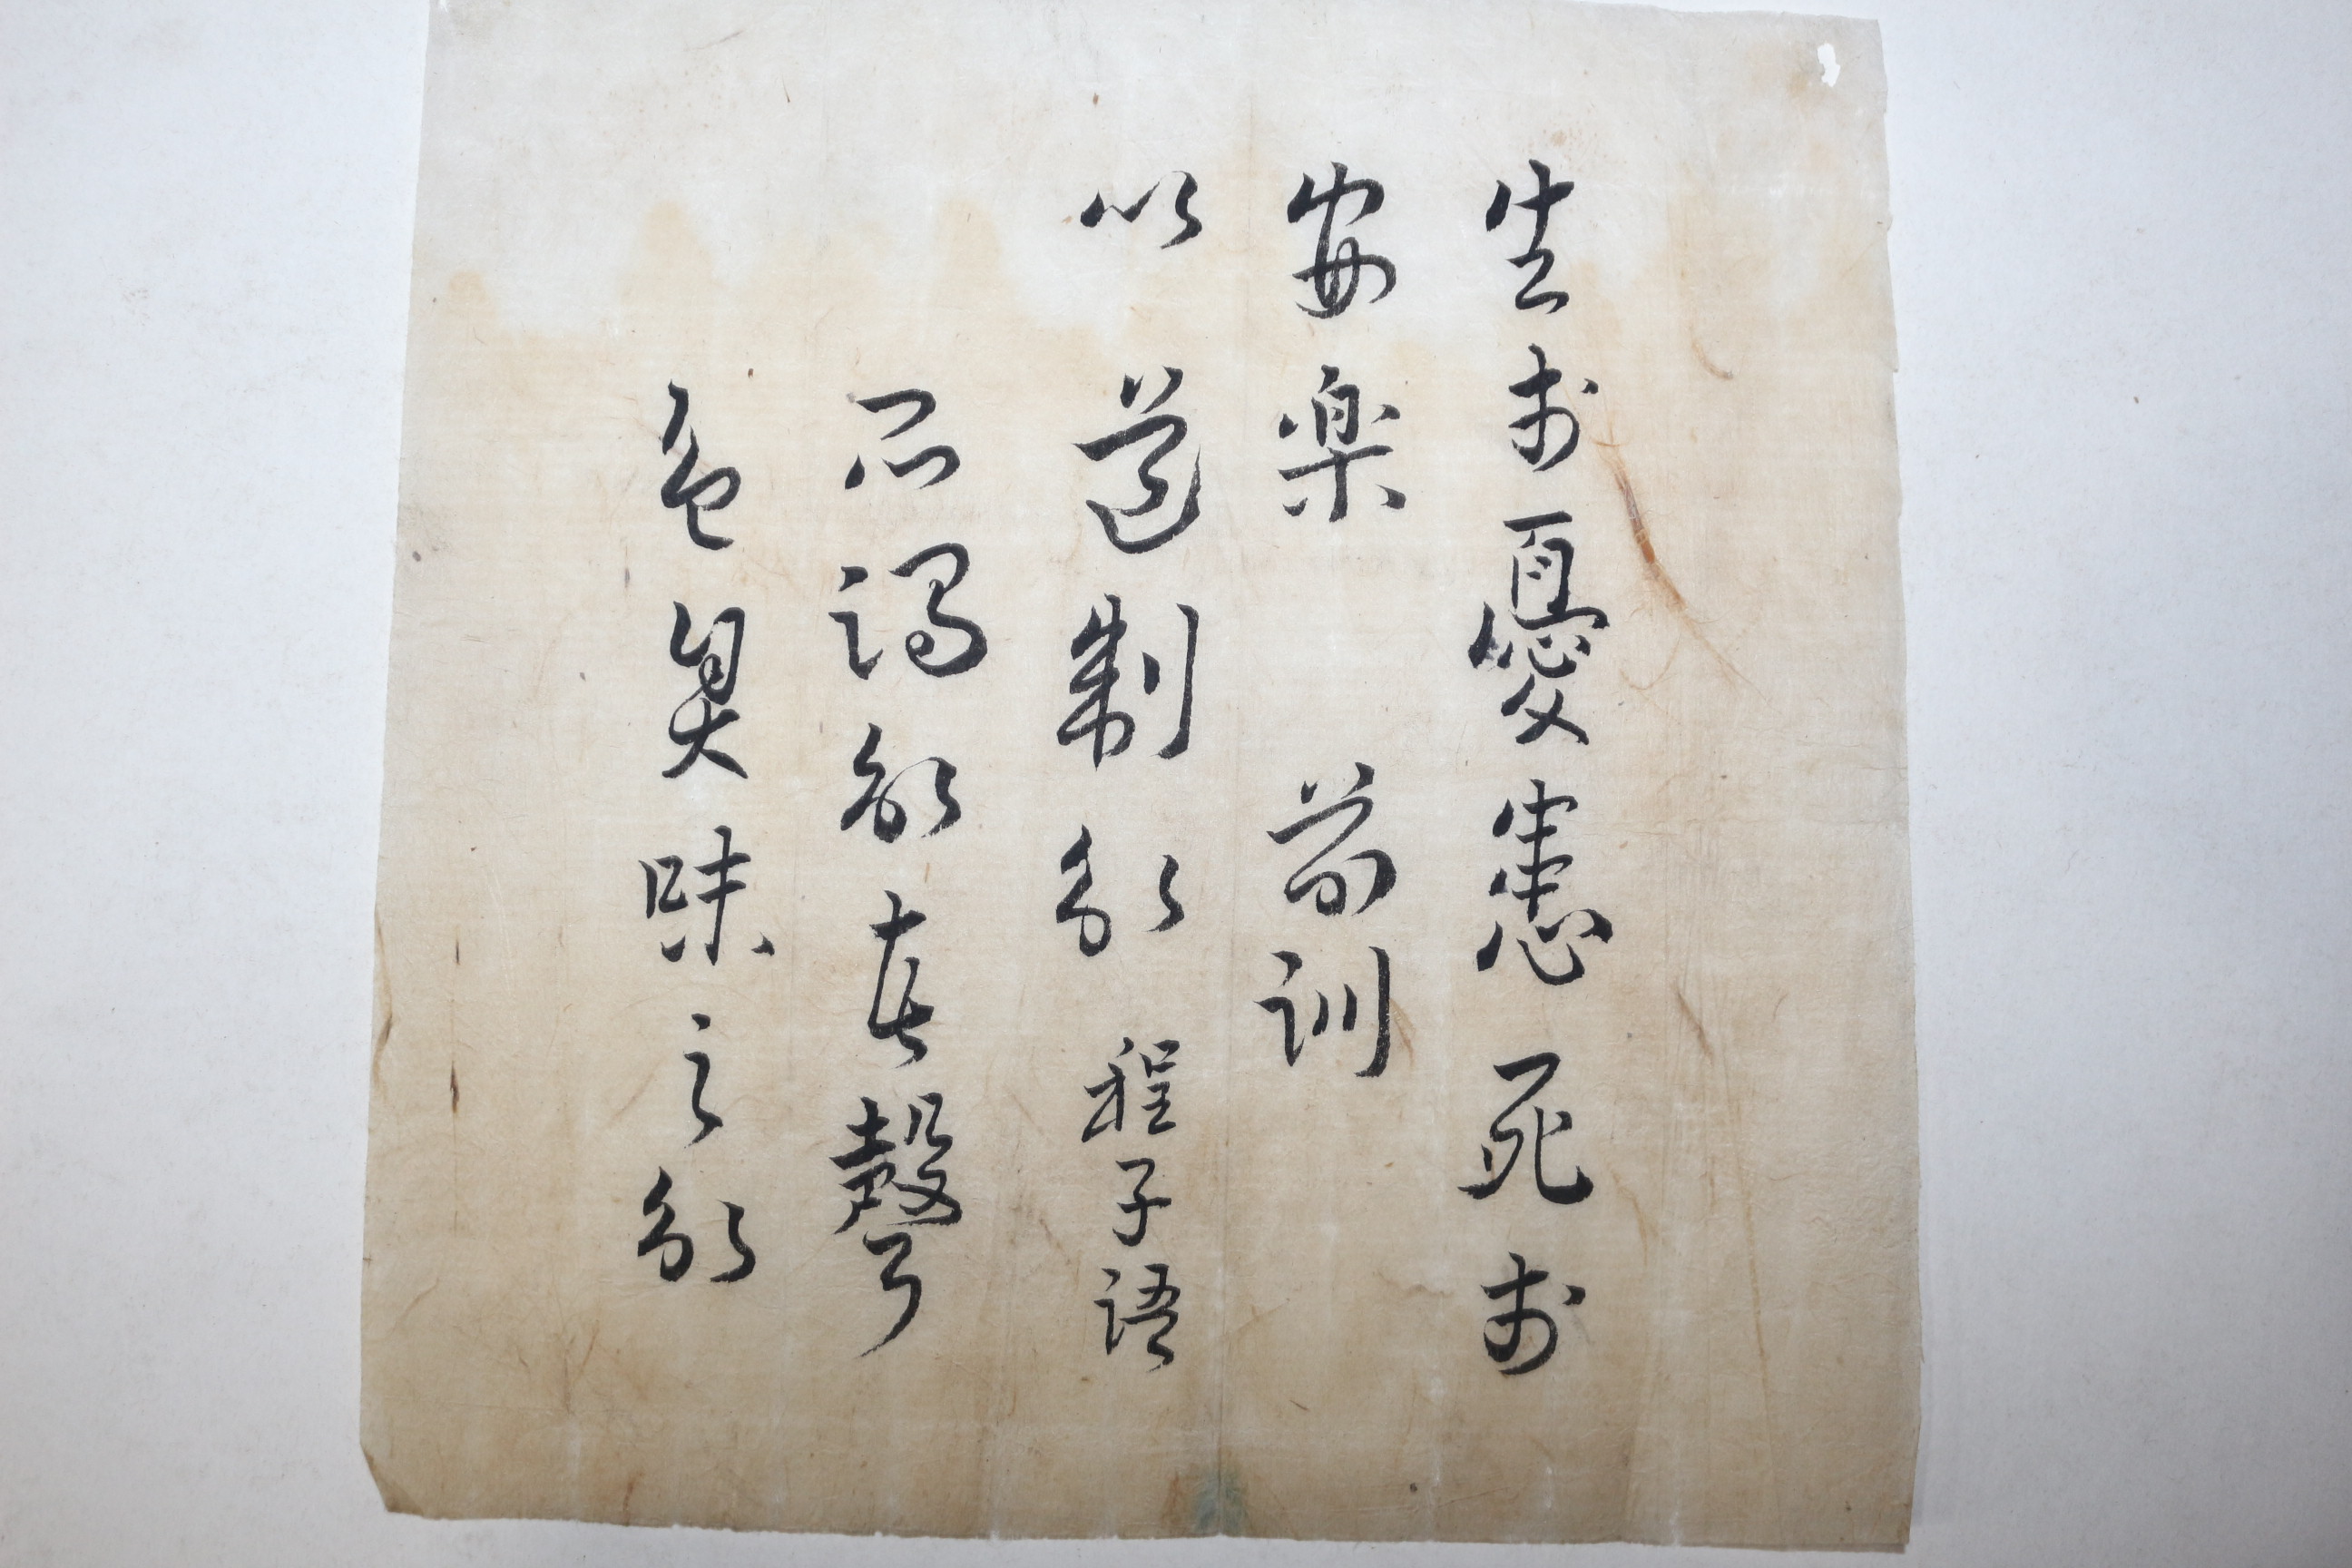 生於憂患死於
安楽 前訓
以道制欲 程子語
所謂欲者聲
色臭味之欲